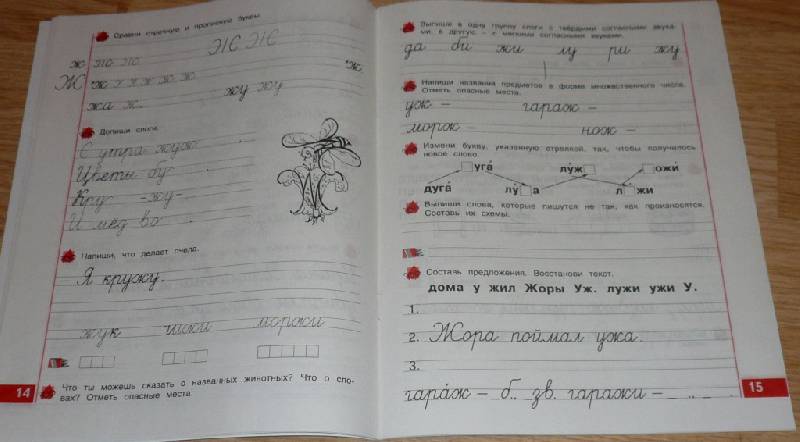 Сравни строчную и прописную буквы.
Ж Ж
ж ж ж ж
Ж ж ж ж ж ж ж
жа ж жу жу
Допиши слова.
С утра жуж
Цветы бу
Кру -жу-
И мёд во
Напиши, что делает пчела.
Я кружу.
жук чижи моржи
Что ты можешь сказать о названных животных? Что о сло-
вах? Отметь опасные места.
14
Выпиши в одну группу слоги с твёрдыми согласными звука-
ми, в другую – с мягкими согласными звуками.
да би жи лу ри жу
Напиши названия предметов в форме множественного числа.
Отметь опасные места.
уж – гараж –
морж – нож –
Измени букву, указанную стрелкой, так, чтобы получилось
новое слово.
уга́ лу́ж ожи́
дуга́ лу а л жи
Выпиши слова, которые пишутся не так, как произносятся.
Составь их схемы.
Составь предложения. Восстанови текст.
дома у жил Жоры Уж. лужи ужи У.
1.
2. Жора поймал ужа.
3.
гара́ж – б.. зв. гаражи –
15